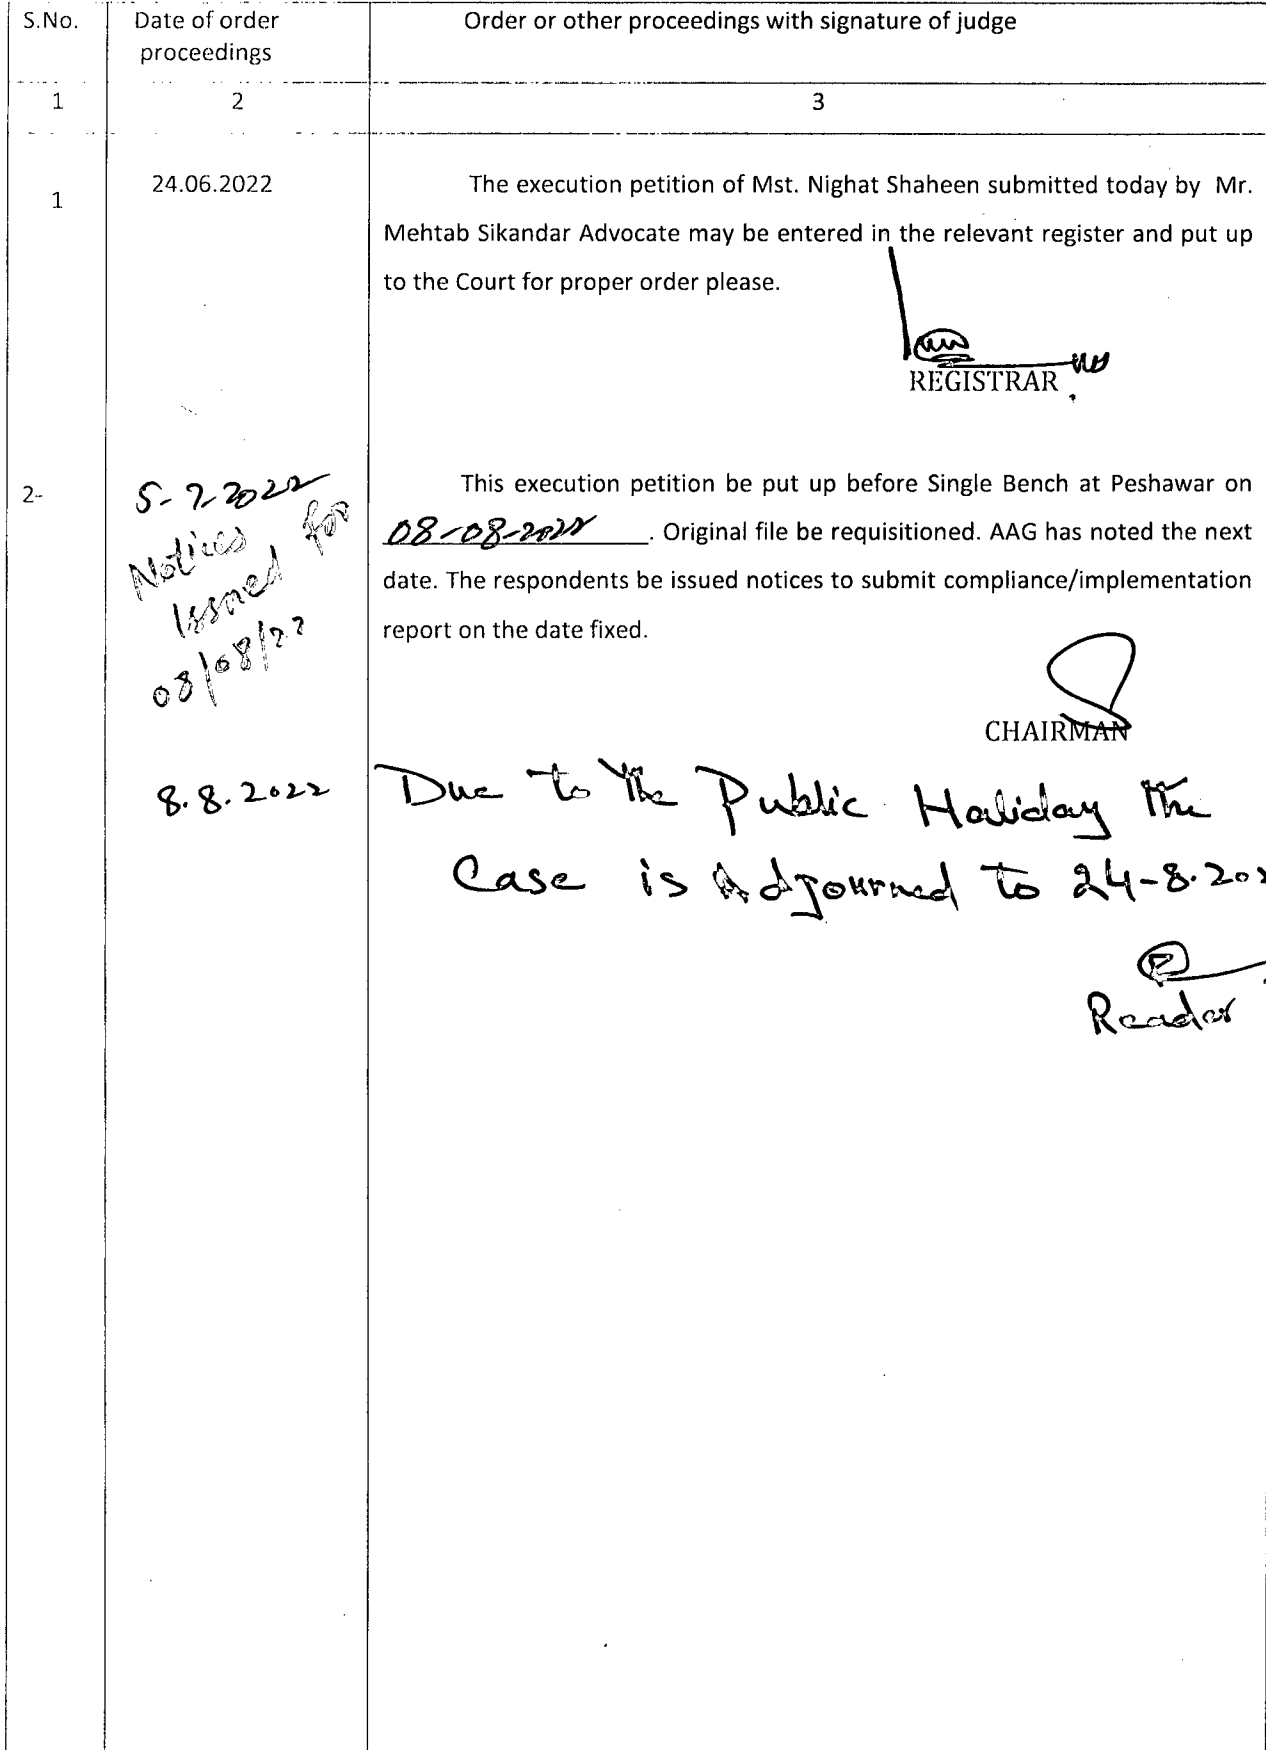 S.No. Date of order proceedings Order or other proceedings with signature of judge
1 2 3
1 24.06.2022 The execution petition of Mst. Nighat Shaheen submitted today by Mr.
Mehtab Sikandar Advocate may be entered in the relevant register and put up
to the Court for proper order please.
REGISTRAR
2- 5-7-2022 This execution petition be put up before Single Bench at Peshawar on
08-08-2022. Original file be requisitioned. AAG has noted the next
date. The respondents be issued notices to submit compliance/implementation
report on the date fixed.
Notices
Issued for
08/08/22
CHAIRMAN
8.8.2022 Due to the Public Holiday the
Case is Adjourned to 24-8-202
Reader